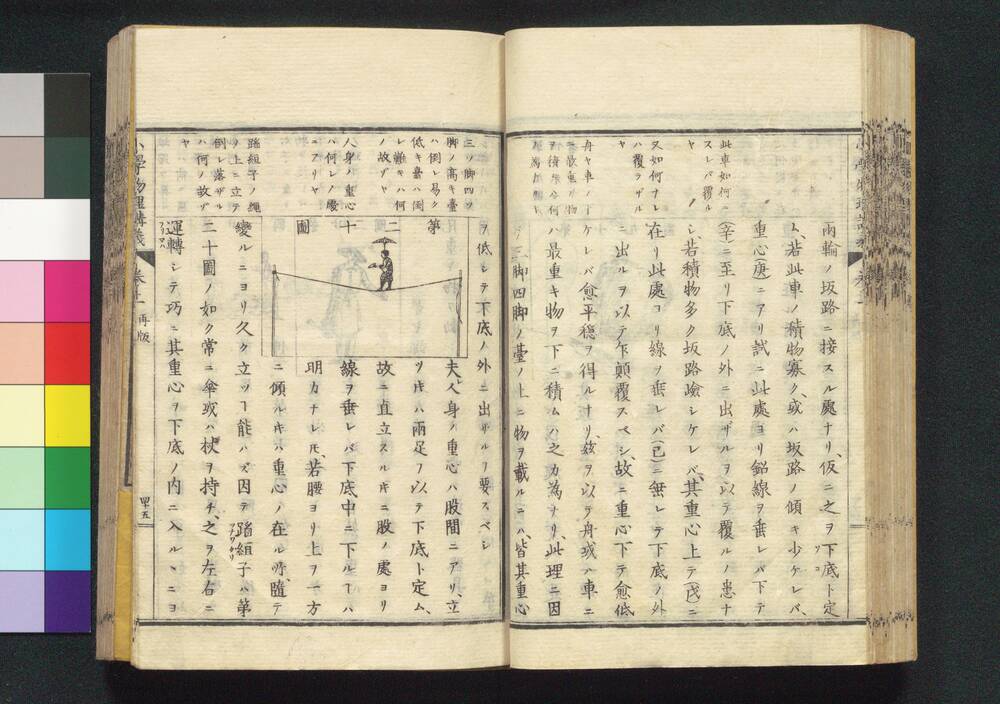 此車如何ニ
スレバ覆ル
ヤ
又如何ナレ
ハ覆ラザル
ヤ
舟ヤ車ノ下
両輪ノ坂路ニ接スル處ナリ、仮ニ之ヲ下底ト定
ム、若此車ノ積物寡ク、或ハ坂路ノ傾キ少ケレバ、
重心(庚)ニアリ試ニ此處ヨリ鉛線ヲ垂レバ下テ
(辛)ニ至リ下底ノ外ニ出ザルヲ以テ覆ルノ患ナ
シ、若積物多ク坂路嶮シケレバ、其重心上テ(戊)ニ
在リ此處ヨリ線ヲ垂レバ(己)ニ垂レテ下底ノ外
ニ出ルヲ以テ乍顛覆スベシ、故ニ重心下テ愈低
ケレバ愈平穏ヲ得ルナリ、玆ヲ以テ舟或ハ車ニ
ハ最重キ物ヲ下ニ積ムハ之カ為ナリ、此理ニ因
テ三脚四脚ノ臺ノ上ニ物ヲ載ルニハ、皆其重心
三ツ脚四ツ
脚ノ高キ臺
ハ倒レ易ク
低キ臺ハ倒
レ難キハ何
ノ故ゾヤ
人身ノ重心
ハ何レノ處
ニアリヤ
踏組子ノ縄
ノ上ニ立テ
倒レ落ザル
ハ何ノ故ゾ
ヤ
ヲ低シテ下底ノ外ニ出ザルヲ要スベシ
第二十圖
夫人身ノ重心ハ股間ニアリ、立
ツ𪜈ハ両足ヲ以テ下底ト定ム、
故ニ直立スル𪜈ニ股ノ處ヨリ
線ヲ垂レバ下底中ニ下ルヿハ
明カナレ𪜈、若腰ヨリ上ヲ一方
ニ傾ル𪜈ハ重心ノ在ル所、隨テ
變ルニヨリ久ク立ツヿ能ハズ因テ踏組子ハ第
二十圖ノ如ク常ニ傘或ハ杖ヲ持チ、之ヲ左右ニ
運轉シテ巧ニ其重心ヲ下底ノ内ニ入ルヽニヨ
小學物理講義
再版